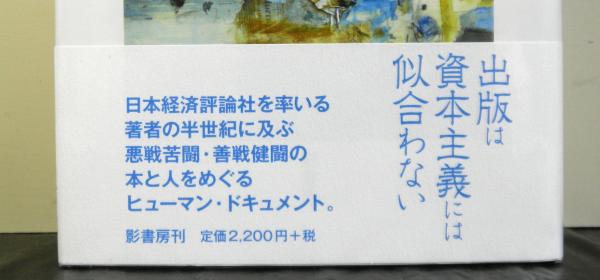 出版は
資本主義には
似合わない
日本経済評論社を率いる
著者の半世紀に及ぶ
悪戦苦闘・善戦健闘の
本と人をめぐる
ヒューマン・ドキュメント。
影書房刊 定価2,200円+税